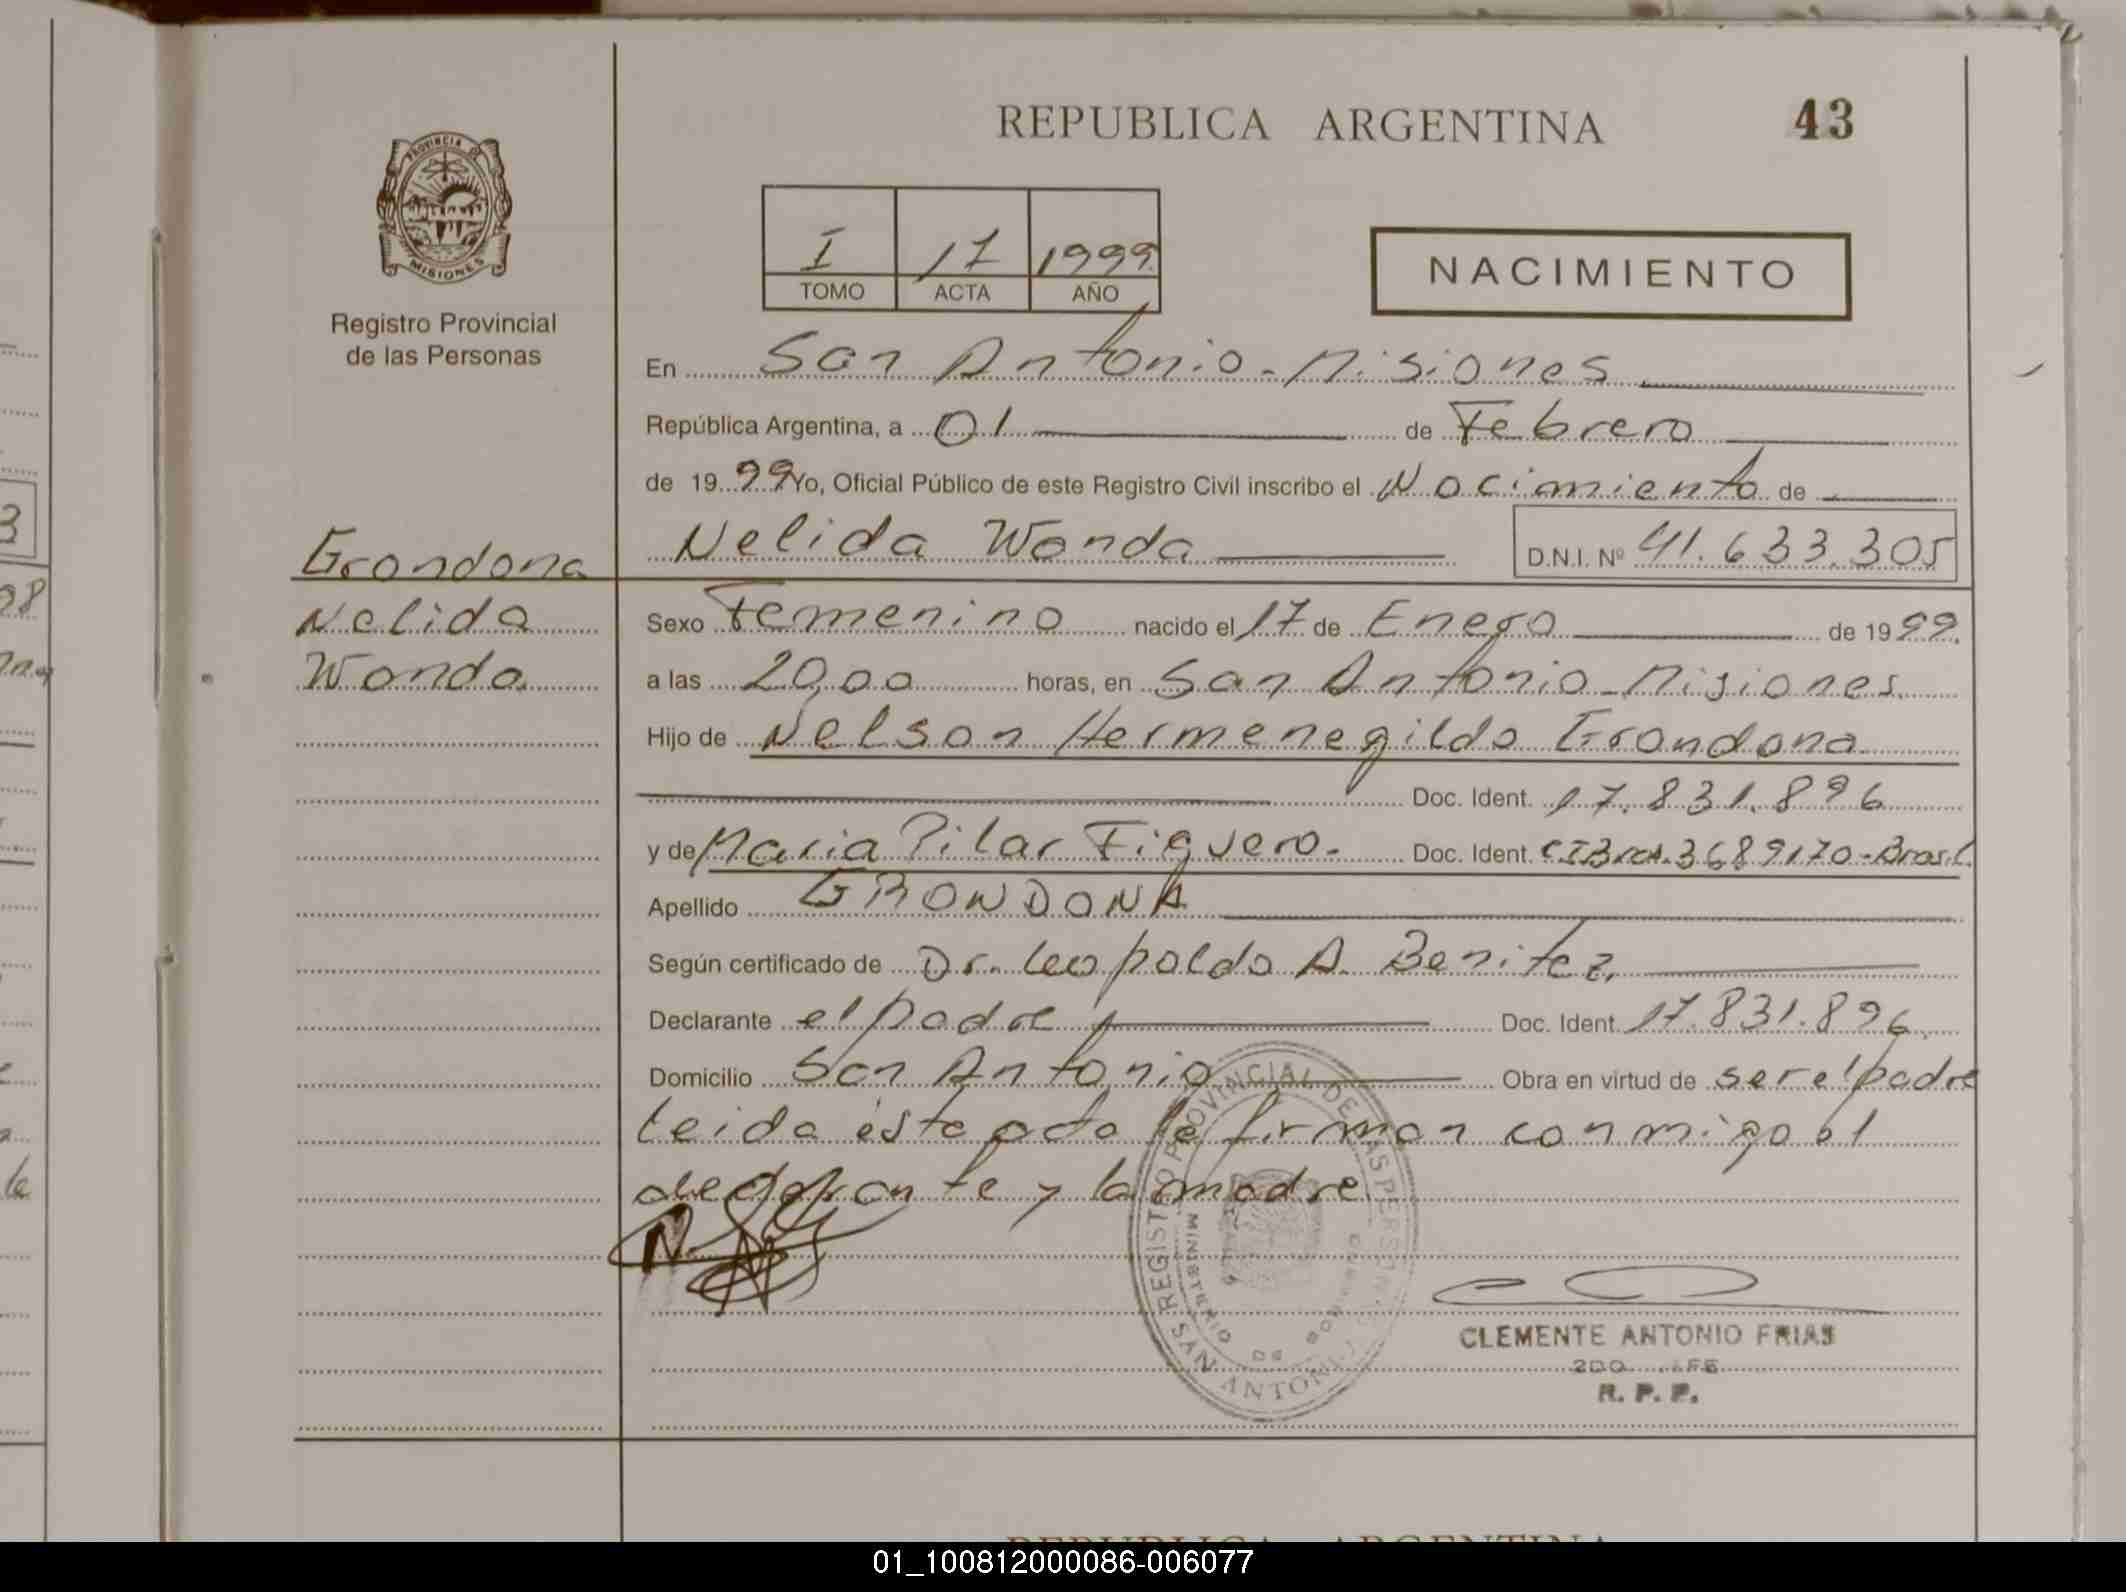 REPUBLICA ARGENTINA
43
PROVINCIA DE
MISIONES
Registro Provincial
de las Personas
I 17 1999
TOMO ACTA AÑO
NACIMIENTO
En San Antonio - Misiones
República Argentina, a 01 de Febrero
de 1999 Yo, Oficial Público de este Registro Civil inscribo el Nacimiento de
Nelida Wanda D.N.I. Nº 41.633.305
Grondona
Nelida
Wanda
Sexo Femenino nacido el 17 de Enero de 1999.
a las 20,00 horas, en San Antonio - Misiones
Hijo de Nelson Hermenegildo Grondona
Doc. Ident. 17.831.896
y de Maria Pilar Figuero. Doc. Ident. 3689170 - Brasil
Apellido GRONDONA
Según certificado de Dr. Leopoldo A. Benitez.
Declarante el padre Doc. Ident. 17.831.896.
Domicilio San Antonio Obra en virtud de ser el padre
Leida ésta acta la firman conmigo el
declarante y la madre.
REGISTRO PROVINCIAL DE LAS PERSONAS
MINISTERIO DE GOBIERNO
SAN ANTONIO
CLEMENTE ANTONIO FRIAS
2DO. JEFE
R. P. P.
REPUBLICA ARGENTINA
01_100812000086-006077